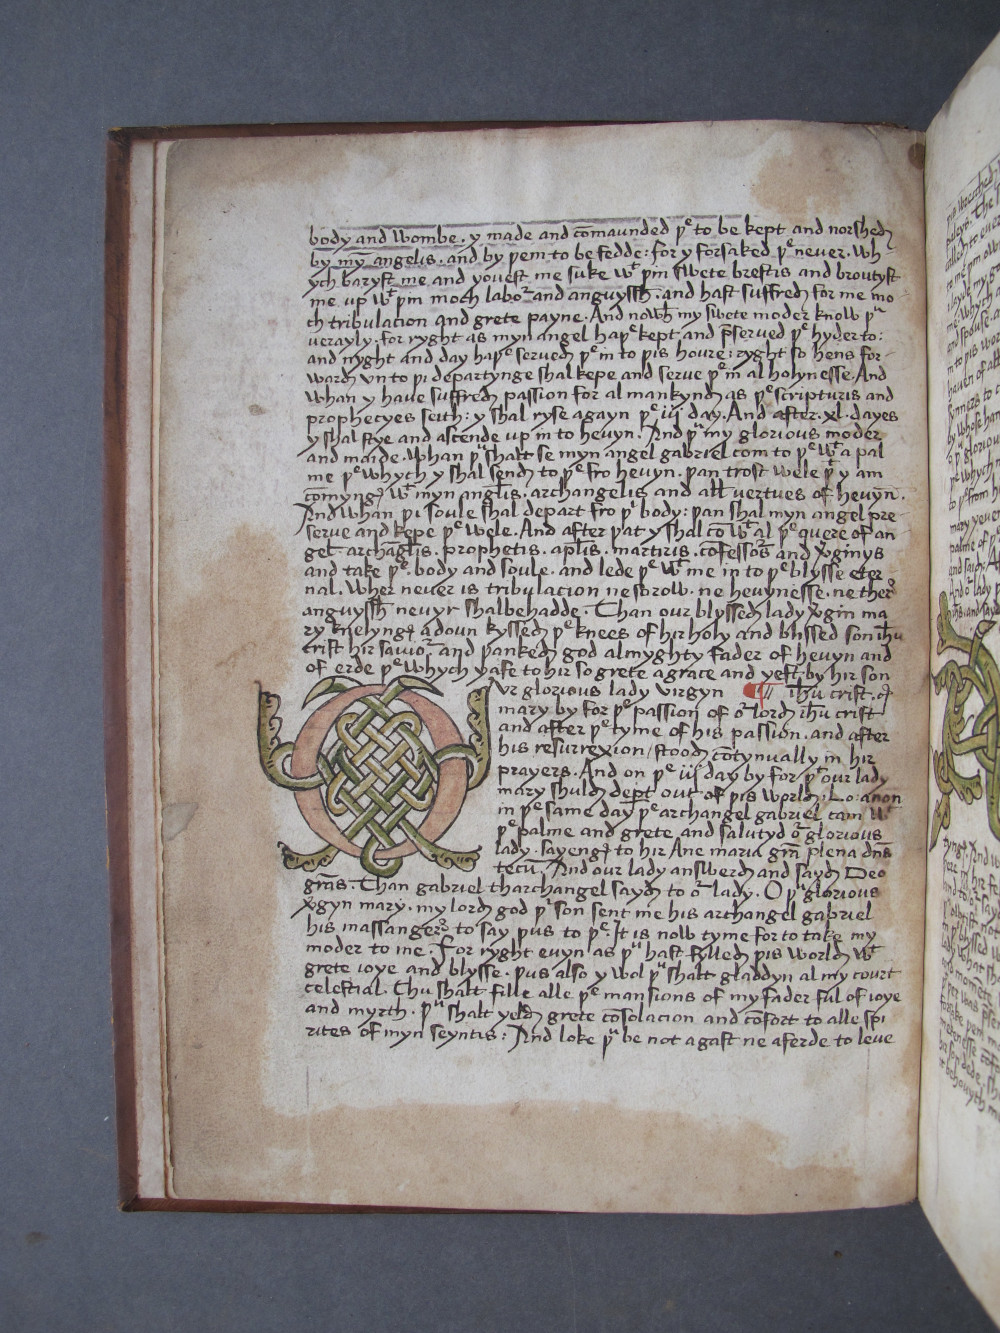 body and wombe. y made and cōmaunded þͤ to be kept and norshed
by mȳ angelis. and by þem to be fedde: for y forsaked þͤ never. wh
ych baryst me and yovest me suke wᵗ þin swete brestis and brovtyst
me up wᵗ þin moch laboʳ and angvyssh. and hast suffred for me mo
ch tribulacion and grete payne. And nowh my swete moder know þᵘ
verayly. for ryght as myn angel haþͤ kept and p̄served þͤ hyder to:
and nyght and day haþͤ served þͤ in to þis houre: ryght so hens for
ward vn to þi departynge shal kepe and serve þͤ in al holynesse. And
whan y have suffred passion for al mankynd as þͤ scripturis and
prophecyes seith: y shal ryse agayn þͤ iijͤ day. And after. xl. dayes
y shal stye and ascende up in to hevyn. And þᵘ my glorious moder
and maide. whan þᵘ shalt se myn angel gabriel com to þͤ wᵗ a pal
me þͤ whych y shal send to þͤ fro hevyn. þan trost wele þᵗ y am
cōmyng wᵗ myn anglis. archangelis and all vertues of hevyn.
And whan þi soule shal depart fro þⁱ body: þan shal myn angel pre
serve and kepe þͤ wele. And after þat y shal cō wᵗ al þͤ quere of an
gel. archāglis. prophetis. aplis. martiris. cōfessoʳs and v̄ginys
and take þͤ. body and soule. and lede þͤ wᵗ me in to þͤ blysse eter
nal. wher never is tribulacion ne sorow. ne hevynesse. ne ther
angvyssh nevyr shalbe hadde. Than our blyssed lady v̄gin ma
ry knelyng adoun kyssed þͤ knees of hir holy and blissed son ihu
crist hir savioʳ. and þanked god almyghty fader of hevyn and
of erde þͤ whych yafe to hir so grete a grace and yeft. by hir son
Ovr glorious lady virgyn ¶ ihu crist.
mary by for þͤ passion of oʳ lord ihu crist
and after þͤ tyme of his passion. and after
his resurrexion / stood cōtynually in hir
prayers. And on þͤ iijͤ day by for þᵗ our lady
mary shuld dep̄t out of þis world. Lo: anon
in þͤ same day þͤ archangel gabriel cam wᵗ
þͤ palme and grete and salutyd oʳ glorious
lady. sayeng to hir Ave maria grā plena dn̄s
tecū. And our lady answerd and sayd Deo
grās. Than gabriel tharchangel sayd to oʳ lady. O þᵘ glorious
v̄gyn mary. my lord god þⁱ son sent me his archangel gabriel
his massanger to say þus to þͤ. It is now tyme for to take my
moder to me. For ryght evyn as þᵘ hast fylled þis world wᵗ
grete ioye and blysse. þus also y wol þᵘ shalt gladdyn al my court
celestial. Thu shalt fille alle þͤ mansions of my fader ful of ioye
and myrth. þᵘ shalt yeld grete cōsolacion and cōfort to alle spi
rites of myn seyntis: And loke þᵘ be not agast ne aferde to leve